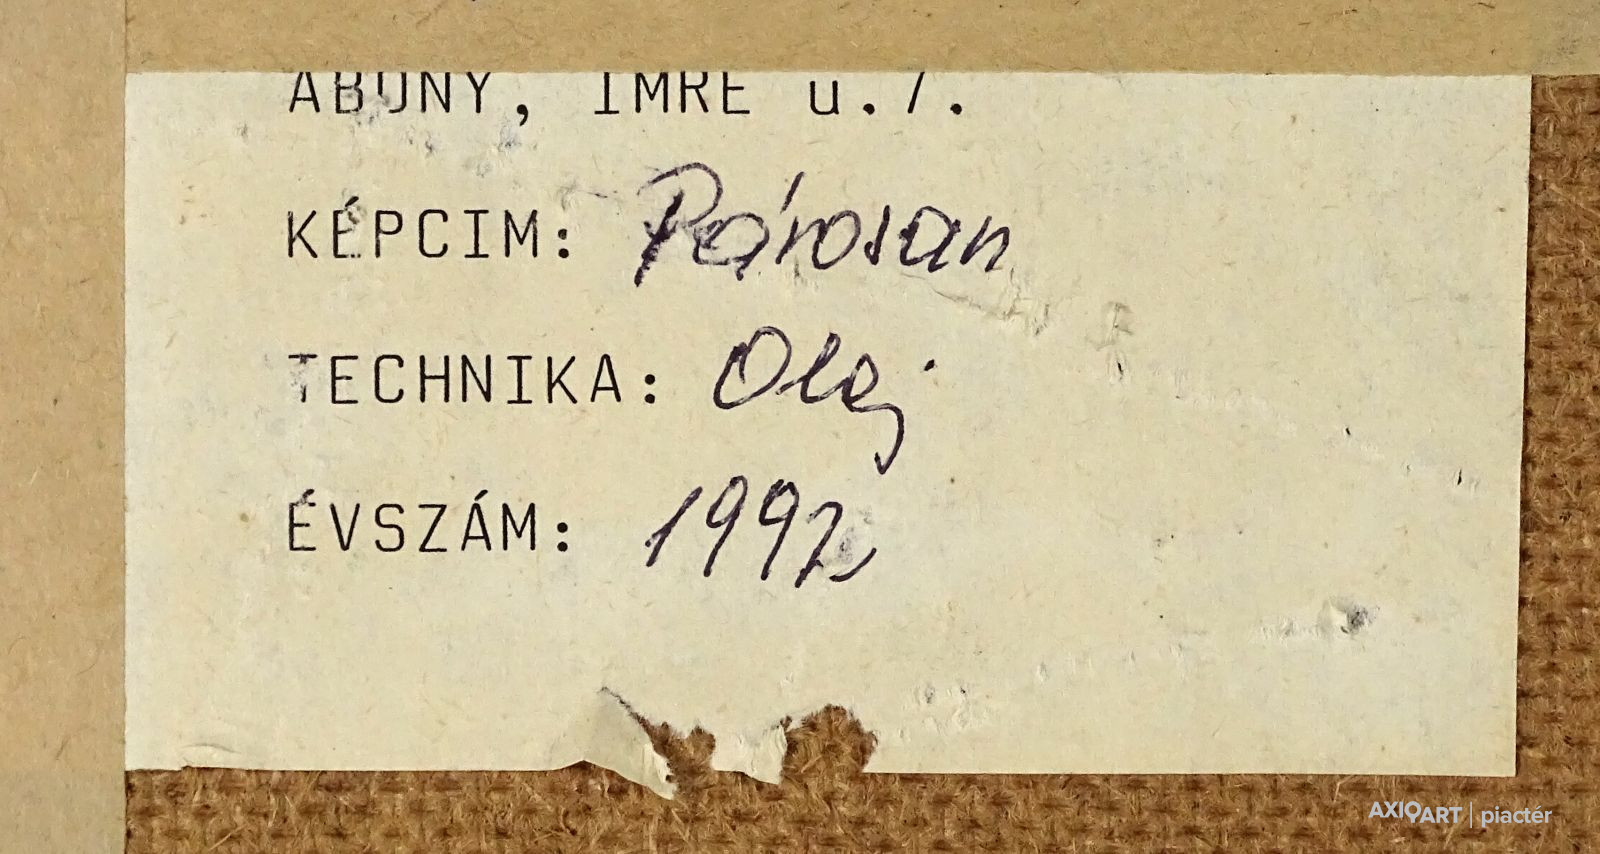 ABONY, IMRE u.7.
KÉPCIM: Párosan
TECHNIKA: Olaj
ÉVSZÁM: 1992
AXIOART | piactér